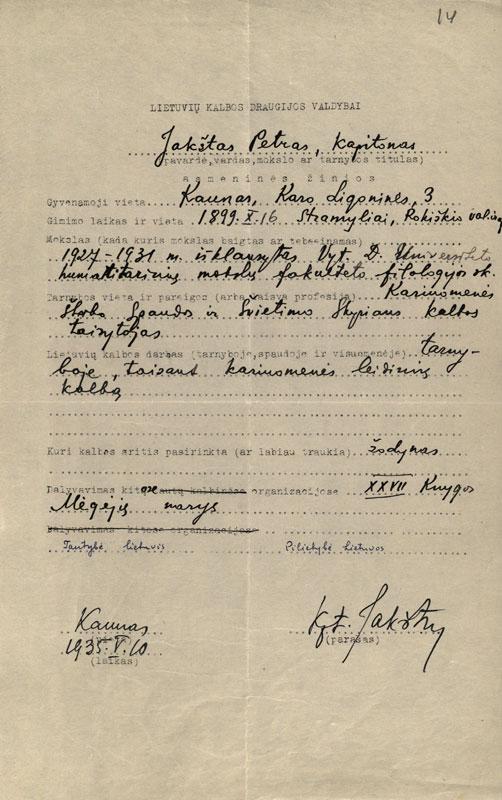 14
LIETUVIŲ KALBOS DRAUGIJOS VALDYBAI
Jakštas Petras, kapitonas
(pavardė, vardas, mokslo ar tarnybos titulas)
asmeninės žinios
Gyvenamoji vieta Kaunas, Karo Ligoninės, 3
Gimimo laikas ir vieta 1899.X.16 Stramyliai, Rokiškio
Mokslas (kada kuris mokslas baigtas ar tebeeinamas)
1927-1931 m. išklausytas Vyt. D. Universiteto
humanitarinių mokslų fakulteto filologijos sk.
Tarnybos vieta ir pareigos (arba laisva profesija) Kariuomenės
Štabo Spaudos ir Švietimo Skyriaus kalbos
taisytojas
Lietuvių kalbos darbas (tarnyboje, spaudoje ir visuomenėje) tarny-
boje, taisant kariuomenės leidinių
kalbą
Kuri kalbos sritis pasirinkta (ar labiau traukia) žodynas
Dalyvavimas kitose organizacijose XXVII Knygos
Mėgėjų narys
Dalyvavimas kitose organizacijose
Tautybė lietuvis Pilietybė Lietuvos
Kaunas
1935.V.10
(laikas)
Kpt. Jakštas
(parašas)